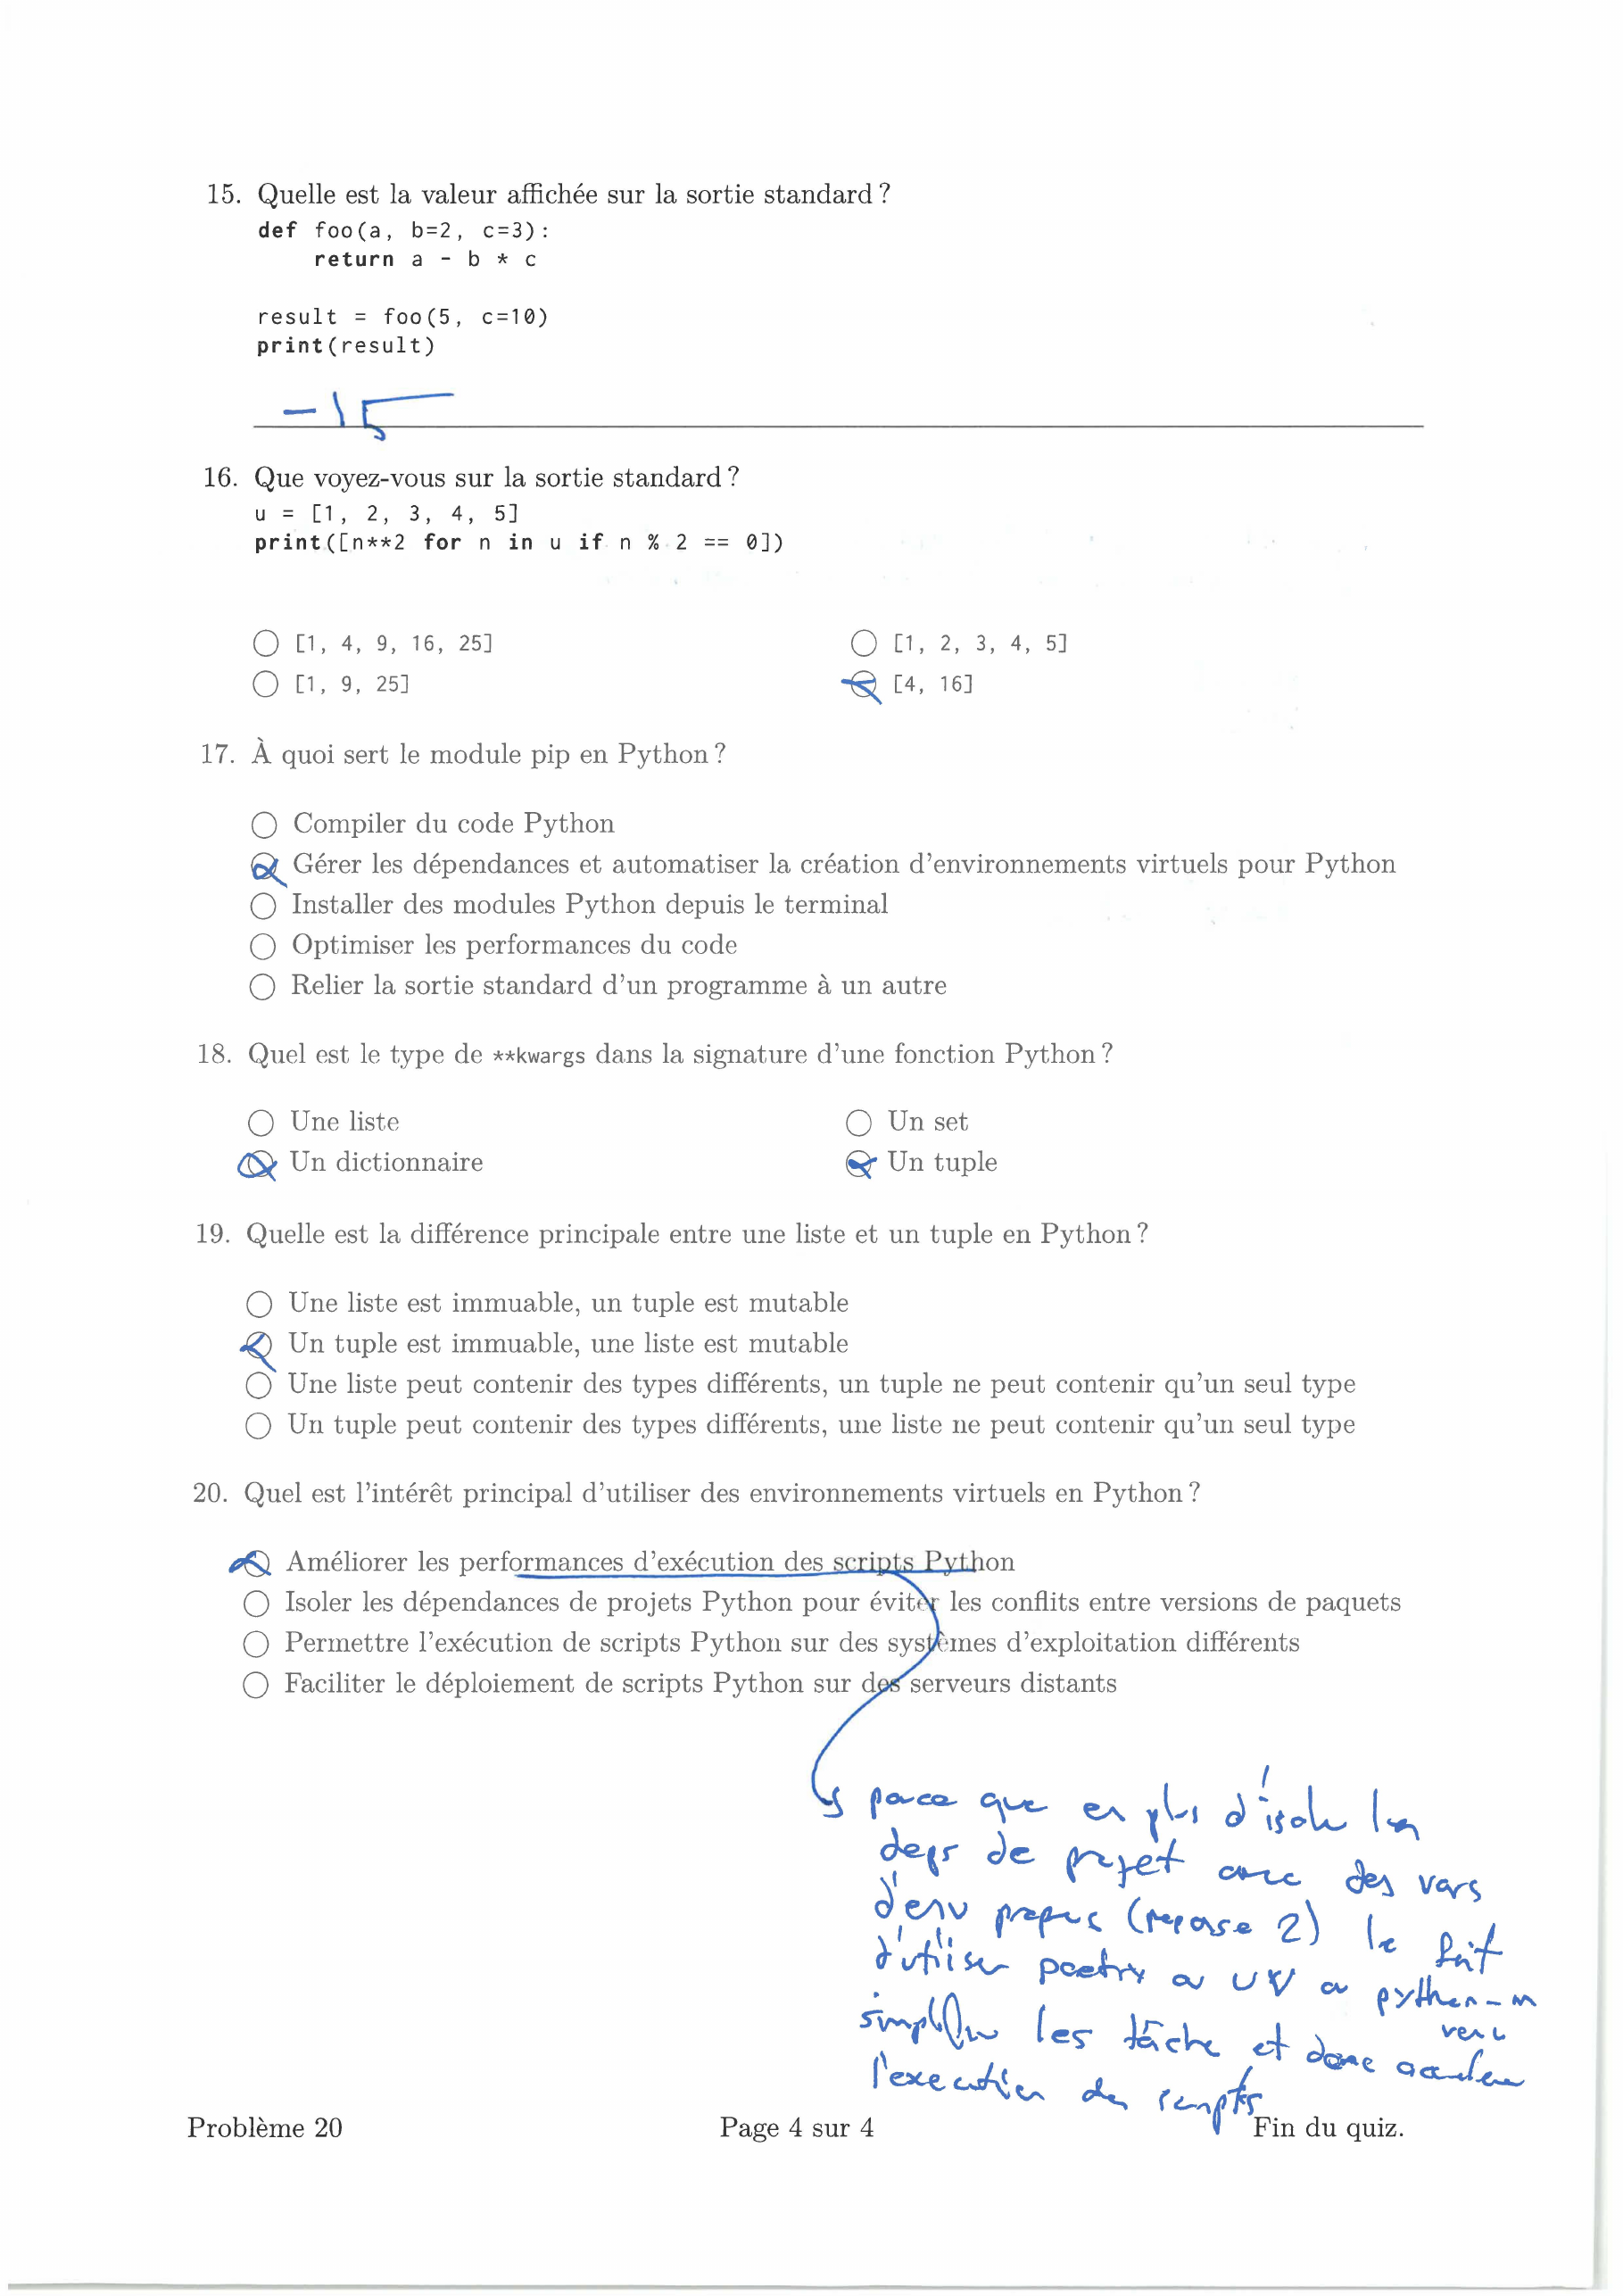 15. Quelle est la valeur affichée sur la sortie standard ?
def foo(a, b=2, c=3):
    return a - b * c
result = foo(5, c=10)
print(result)
-15
16. Que voyez-vous sur la sortie standard ?
u = [1, 2, 3, 4, 5]
print([n**2 for n in u if n % 2 == 0])
[1, 4, 9, 16, 25]
[1, 2, 3, 4, 5]
[1, 9, 25]
[4, 16]
17. À quoi sert le module pip en Python ?
Compiler du code Python
Gérer les dépendances et automatiser la création d'environnements virtuels pour Python
Installer des modules Python depuis le terminal
Optimiser les performances du code
Relier la sortie standard d'un programme à un autre
18. Quel est le type de **kwargs dans la signature d'une fonction Python ?
Une liste
Un set
Un dictionnaire
Un tuple
19. Quelle est la différence principale entre une liste et un tuple en Python ?
Une liste est immuable, un tuple est mutable
Un tuple est immuable, une liste est mutable
Une liste peut contenir des types différents, un tuple ne peut contenir qu'un seul type
Un tuple peut contenir des types différents, une liste ne peut contenir qu'un seul type
20. Quel est l'intérêt principal d'utiliser des environnements virtuels en Python ?
Améliorer les performances d'exécution des scripts Python
Isoler les dépendances de projets Python pour éviter les conflits entre versions de paquets
Permettre l'exécution de scripts Python sur des systèmes d'exploitation différents
Faciliter le déploiement de scripts Python sur des serveurs distants
parce que en plus d'isoler les
deps de projet avec des vars
d'env propres (reponse 2) le fait
d'utiliser poetry ou UV ou python -m
venv
les tâche et donc
l'execution des scripts
Problème 20
Page 4 sur 4
Fin du quiz.